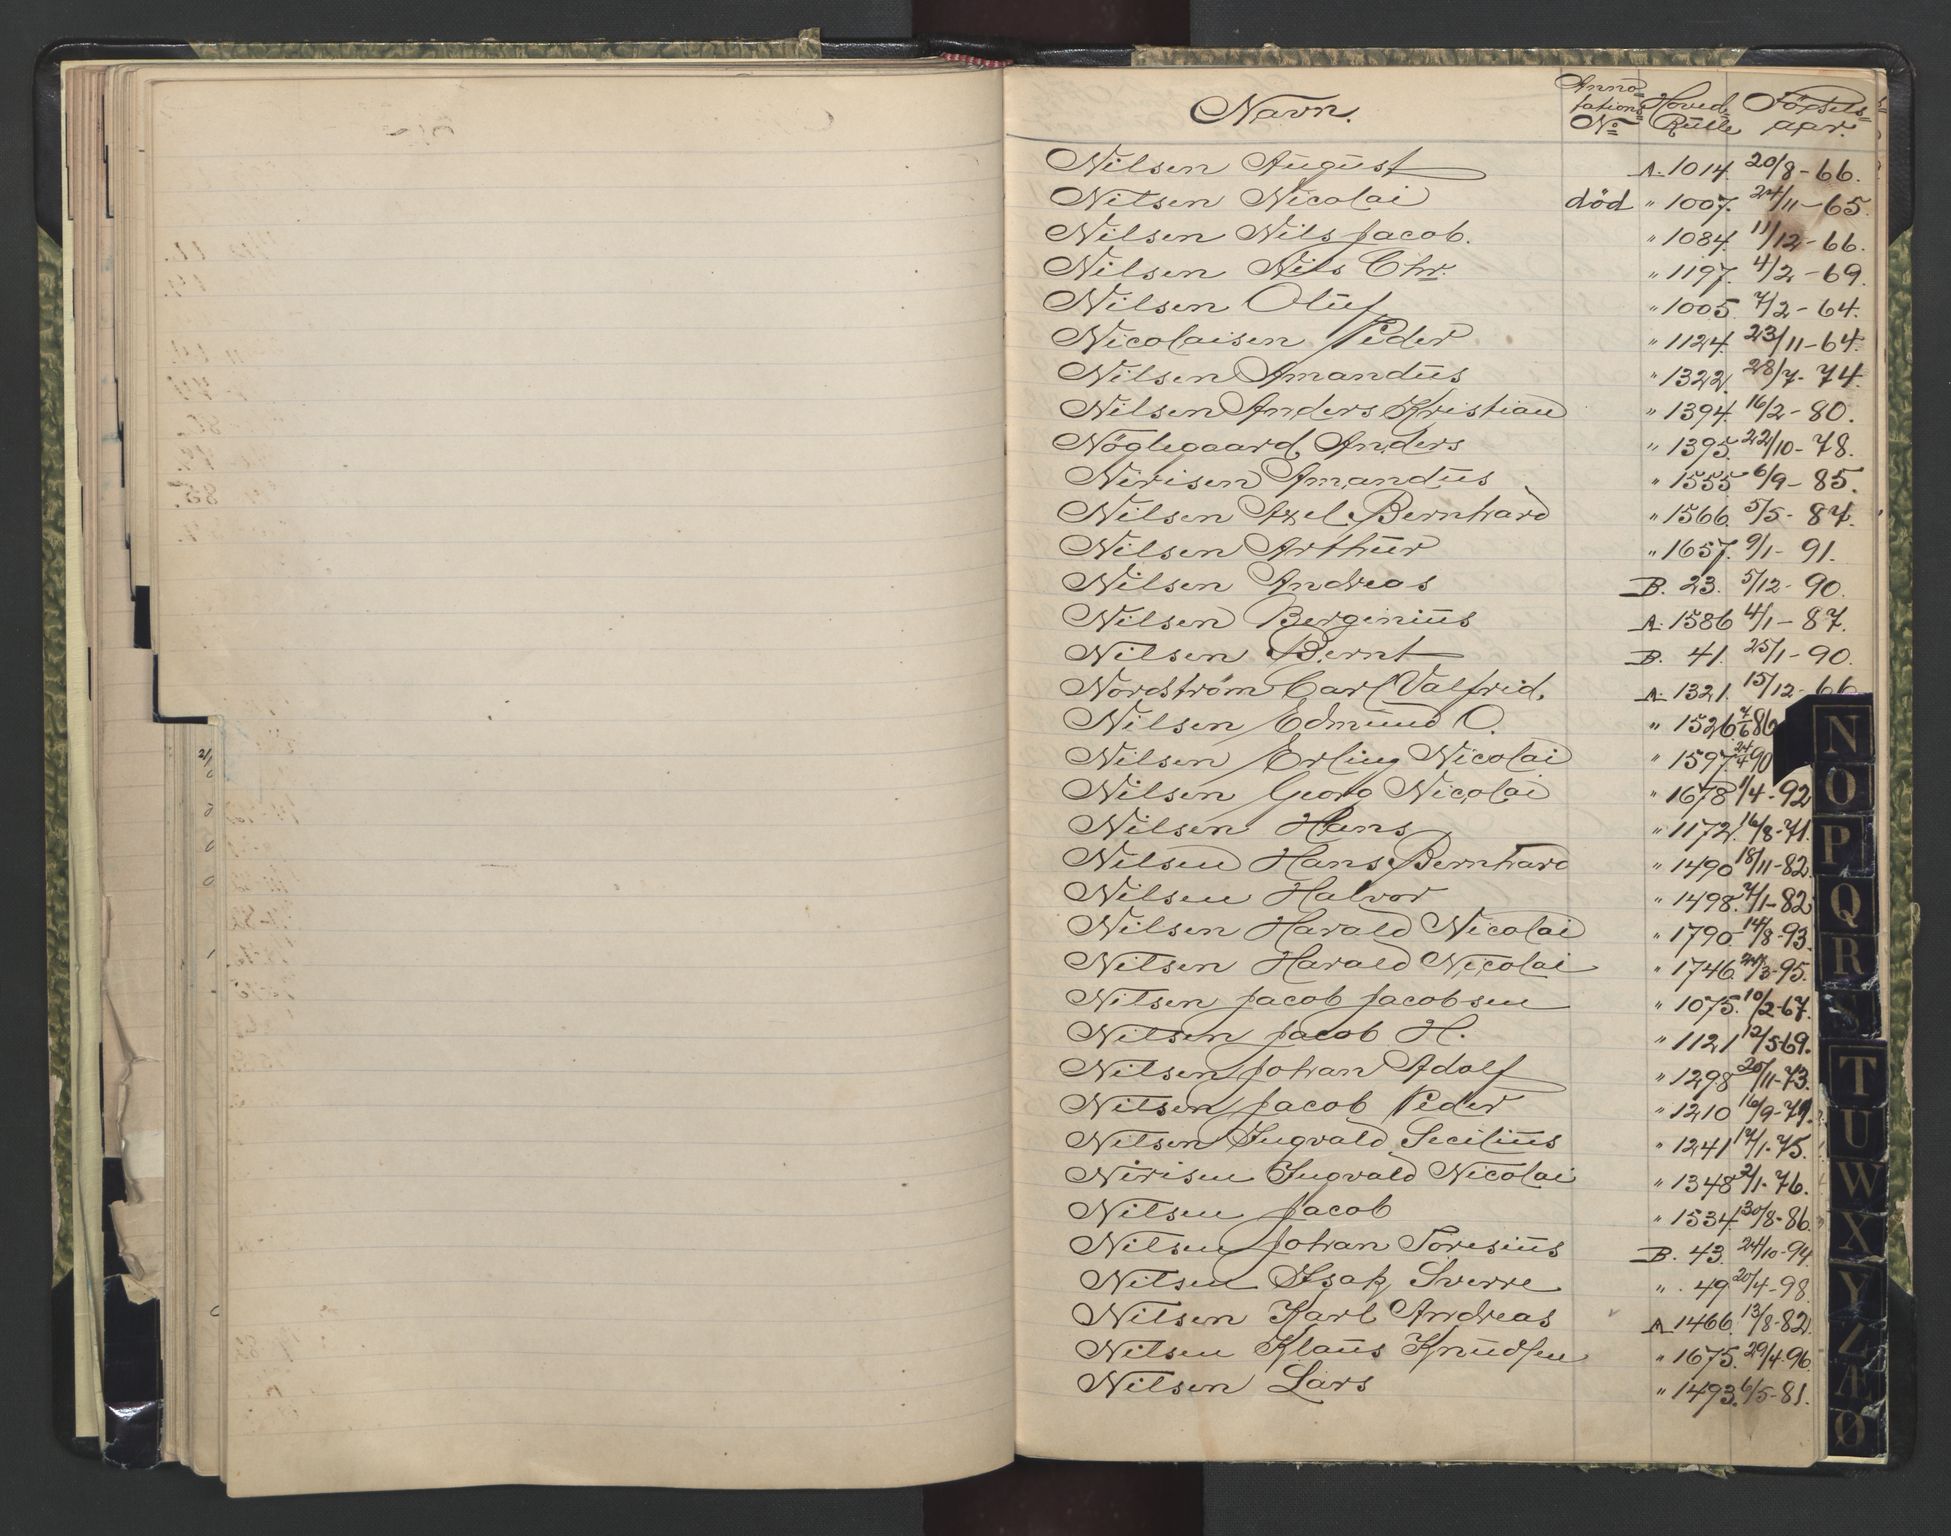 Navn. Annotations No Hoved Rulle Födsels-aar.
Nilsen August A. 1014. 20/8-66.
Nilsen Nicolai död " 1007. 24/11-65.
Nilsen Nils Jacob. " 1084. 11/12-66.
Nilsen Nils Chr. " 1197. 4/2-69.
Nilsen Oluf " 1005. 7/2-64.
Nicolaisen Peder " 1124. 23/11-64.
Nilsen Amandus " 1322. 28/7-74.
Nilsen Anders Kristian " 1394. 16/2-80.
Nöglegaard, Anders " 1395. 22/10-78.
Nirisen Amandus " 1555 6/9-85.
Nilsen Axel Bernhard " 1566. 5/5-87.
Nilsen Arthur " 1657. 9/1-91.
Nilsen Andreas B. 23. 5/12-90.
Nilsen Berginius A. 1586 4/1-87.
Nilsen Bernt B. 41. 25/1-90.
Nordström Carl Valfrid. A. 1321. 15/12-66
Nilsen Edmund O. " 1526. 7/6 86
Nilsen Erling Nicolai " 1597. 24/4 90
Nilsen Georg Nicolai " 1678 1/4-92
Nilsen Hans " 1172. 16/8-71.
Nilsen Hans Bernhard " 1490 18/11-82.
Nilsen Halvor " 1498. 7/1-82
Nilsen Harald Nicolai " 1790 14/8-93.
Nilsen Harald Nicolai " 1746. 24/3-95.
Nilsen Jacob Jacobsen " 1075. 10/2-67.
Nilsen Jacob H. " 1121 12/5-69.
Nilsen Johan Adolf " 1298 20/11-73.
Nilsen Jacob Peder " 1210 16/9-71.
Nilsen Ingvald Secilius " 1241 17/1-75.
Nirisen Ingvald Nicolai " 1348 2/1-76.
Nilsen Jacob " 1534. 30/8-86.
Nilsen Johan Toresius B. 43. 24/10-94.
Nilsen Isak Sverre " 49 20/4-98.
Nilsen Karl Andreas A 1466. 13/8-82.
Nilsen Klaus Knudsen " 1675. 29/4-96.
Nilsen Lars " 1493. 6/5-81.
N
O
P
Q
R
S
T
U
W
X
Y
Z
Æ
Ø